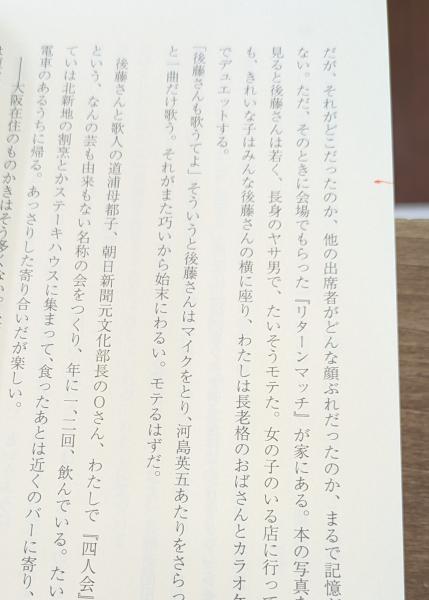 だが、それがどこだったのか、他の出席者がどんな顔ぶれだったのか、まるで記憶が
ない。ただ、そのときに会場でもらった『リターンマッチ』が家にある。本の写真を
見ると後藤さんは若く、長身のヤサ男で、たいそうモテた。女の子のいる店に行って
も、きれいな子はみんな後藤さんの横に座り、わたしは長老格のおばさんとカラオケ
でデュエットする。
「後藤さんも歌うてよ」そういうと後藤さんはマイクをとり、河島英五あたりをさらっ
と一曲だけ歌う。それがまた巧いから始末にわるい。モテるはずだ。
後藤さんと歌人の道浦母都子、朝日新聞元文化部長のOさん、わたしで『四人会』
という、なんの芸も由来もない名称の会をつくり、年に一、二回、飲んでいる。たい
ていは北新地の割烹とかステーキハウスに集まって、食ったあとは近くのバーに寄り、
電車のあるうちに帰る。あっさりした寄り合いだが楽しい。
──大阪在住のものかきはそう多くない。